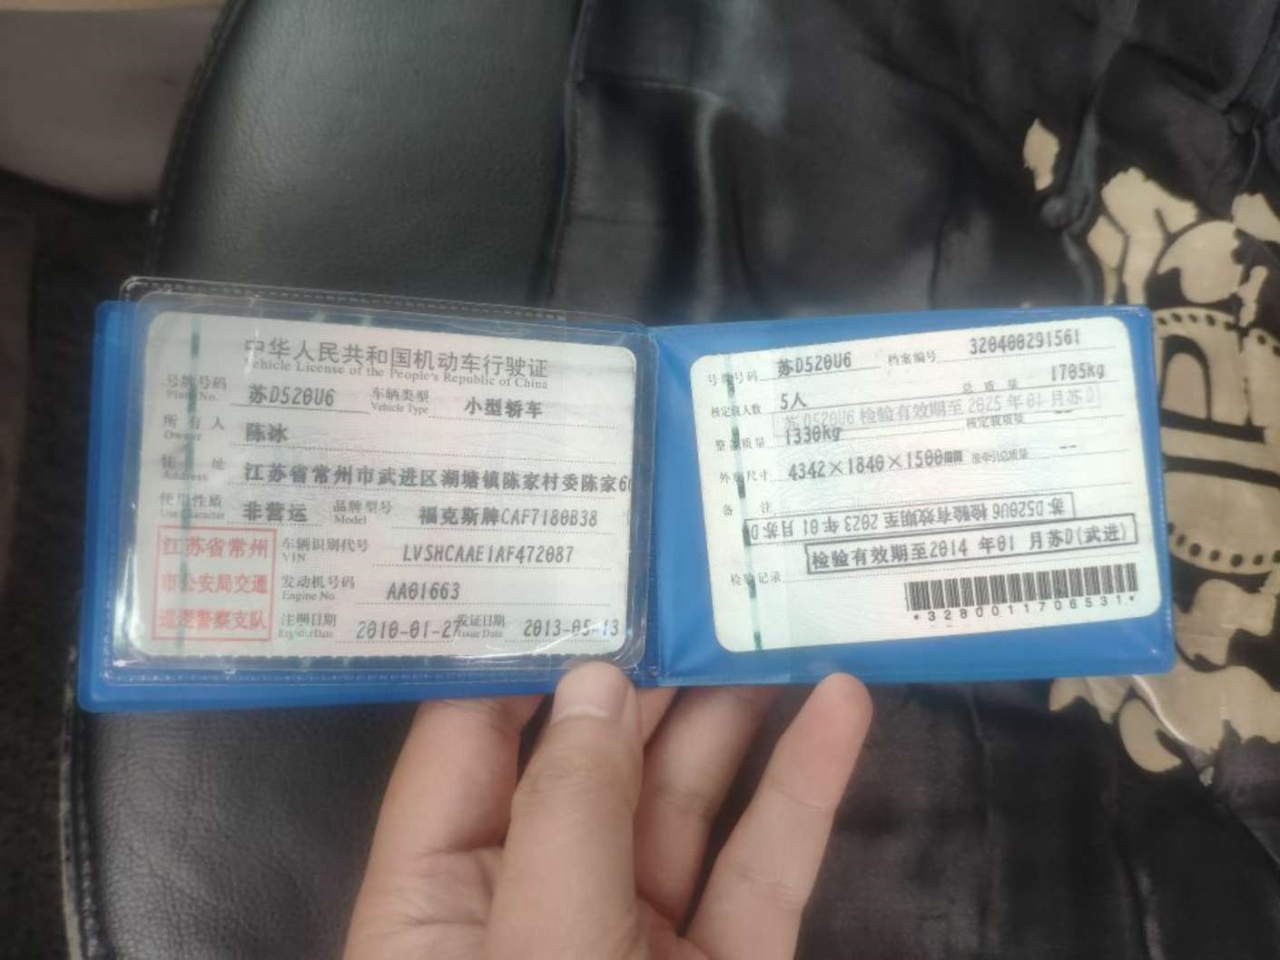 中华人民共和国机动车行驶证
Vehicle License of the People's Republic of China
号牌号码 苏D520U6 车辆类型 小型轿车
Plate No. Vehicle Type
所有人 陈冰
Owner
住址 江苏省常州市武进区湖塘镇陈家村委陈家60
Address
使用性质 非营运 品牌型号 福克斯牌CAF7180B38
Use Character Model
江苏省常州
市公安局交通
巡逻警察支队
车辆识别代号 LVSHCAAE1AF472087
VIN
发动机号码 AA01663
Engine No.
注册日期 2010-01-27 发证日期 2013-05-13
Register Date Issue Date
号牌号码 苏D520U6 档案编号 320400291561
核定载人数 5人 总质量 1705kg
苏D520U6 检验有效期至 2025 年 01 月苏D
整备质量 1330kg 核定载质量 --
外廓尺寸 4342×1840×1500mm 准牵引总质量 --
备注
苏D520U6 检验有效期至 2023 年 01 月苏D
检验有效期至2014 年01 月苏D(武进)
检验记录
*3280011706531*